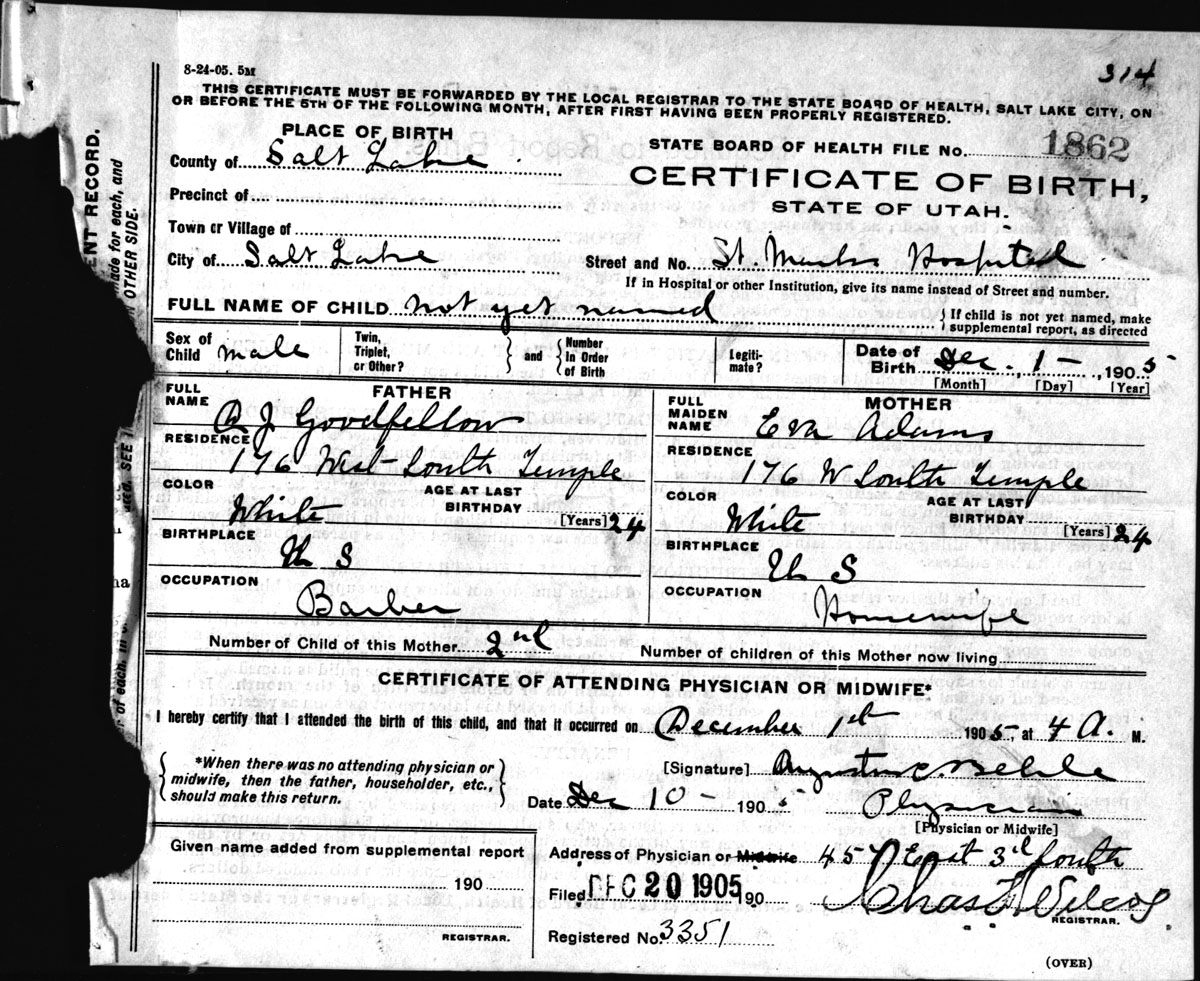 8-24-05. 5M
314
THIS CERTIFICATE MUST BE FORWARDED BY THE LOCAL REGISTRAR TO THE STATE BOARD OF HEALTH, SALT LAKE CITY, ON
OR BEFORE THE 5TH OF THE FOLLOWING MONTH, AFTER FIRST HAVING BEEN PROPERLY REGISTERED.
PLACE OF BIRTH
STATE BOARD OF HEALTH FILE NO. 1862
County of Salt Lake
CERTIFICATE OF BIRTH,
Precinct of
STATE OF UTAH.
Town or Village of
City of Salt Lake
Street and No. St. Marks Hospital
If in Hospital or other Institution, give its name instead of Street and number.
FULL NAME OF CHILD not yet named
If child is not yet named, make
supplemental report, as directed
Sex of Child male
Twin, Triplet, or Other?
and
Number In Order of Birth
Legiti- mate?
Date of Birth Dec., 1 -, 1905
[Month] [Day] [Year]
FATHER
FULL NAME
J Goodfellow
RESIDENCE
176 West South Temple
COLOR
White
AGE AT LAST BIRTHDAY [Years] 24
BIRTHPLACE
U S
OCCUPATION
Barber
MOTHER
FULL MAIDEN NAME
Eva Adams
RESIDENCE
176 W South Temple
COLOR
White
AGE AT LAST BIRTHDAY [Years] 24
BIRTHPLACE
U S
OCCUPATION
Housewife
Number of Child of this Mother 2nd
Number of children of this Mother now living
CERTIFICATE OF ATTENDING PHYSICIAN OR MIDWIFE*
I hereby certify that I attended the birth of this child, and that it occurred on December 1st 1905, at 4 A. M.
*When there was no attending physician or
midwife, then the father, householder, etc.,
should make this return.
[Signature] Augustus C. Behle
Date Dec 10 - 1905
Physician
[Physician or Midwife]
Given name added from supplemental report
190
REGISTRAR.
Address of Physician or Midwife 457 East 3rd South
Filed DEC 20 1905 190
Chas F Wilcox
REGISTRAR.
Registered No. 3351
(OVER)
ENT RECORD.
made for each, and
OTHER SIDE.